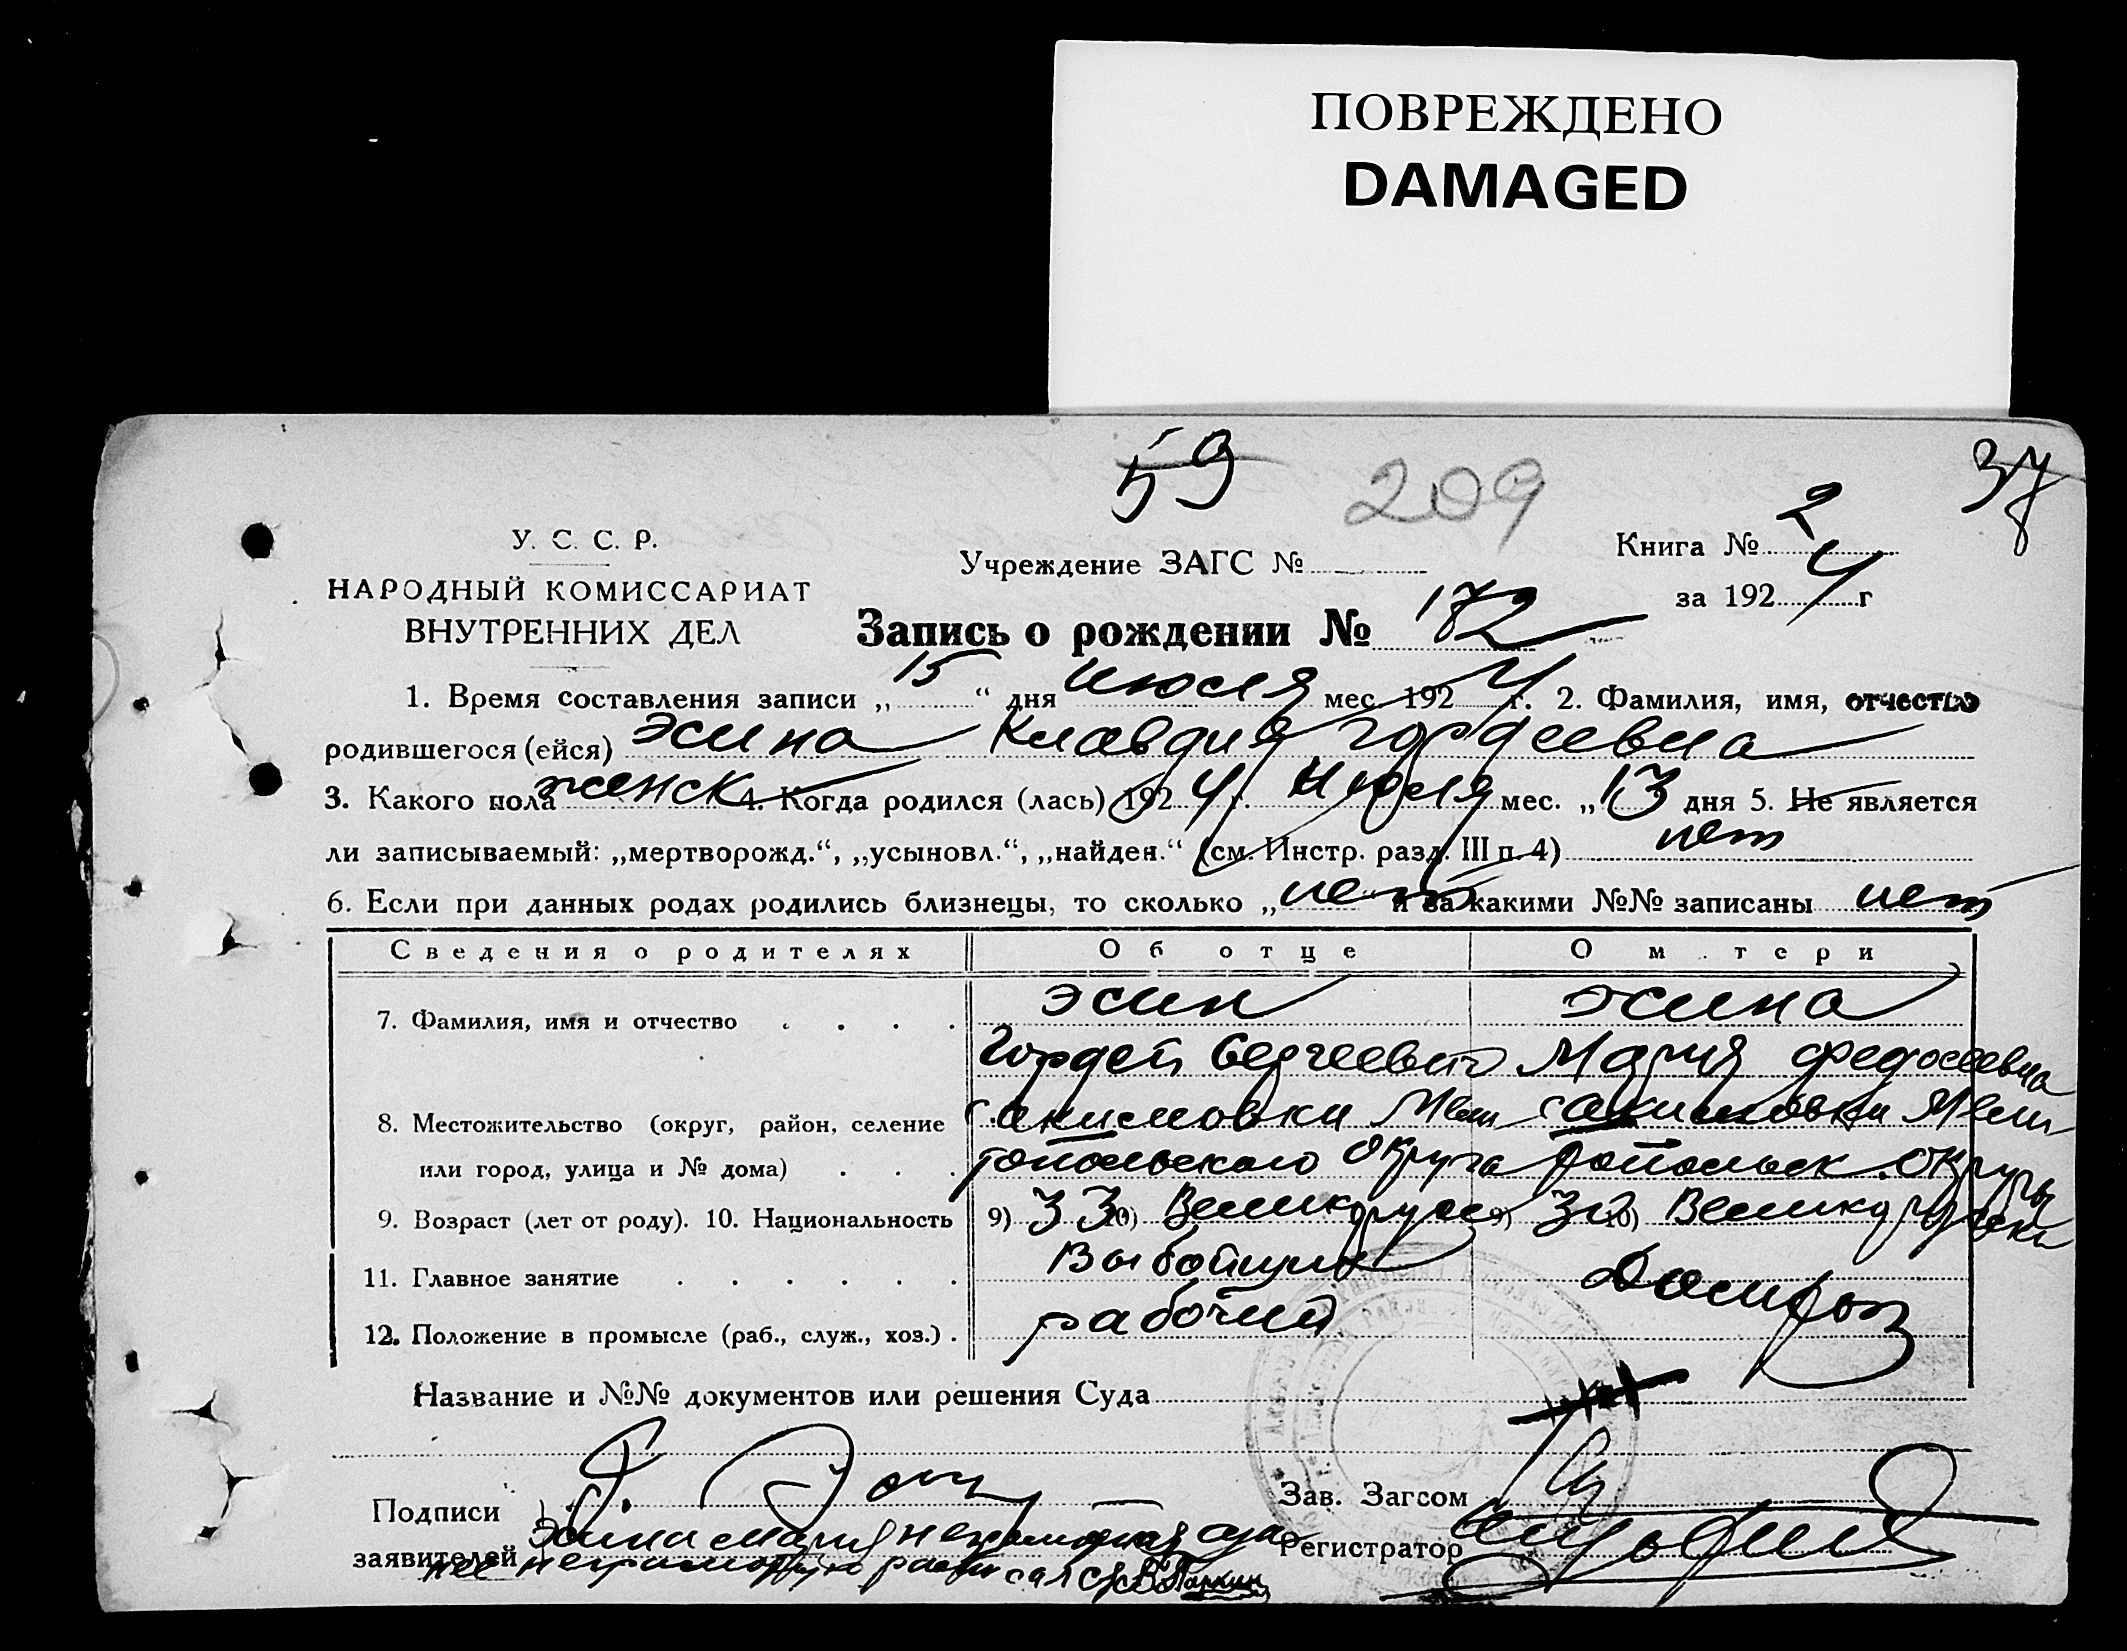 ПОВРЕЖДЕНО
DAMAGED
59 209 37
У. С. С. Р.
НАРОДНЫЙ КОМИССАРИАТ
ВНУТРЕННИХ ДЕЛ
Учреждение ЗАГС №
Книга № 2
за 1924 г
Запись о рождении № 172
1. Время составления записи „15“ дня июля мес. 1924 г. 2. Фамилия, имя, отчество
родившегося (ейся) Эсина Клавдия Гордеевна
3. Какого пола женск 4. Когда родился (лась) 1924 г. Июля мес. „13 дня 5. Не является
ли записываемый: „мертворожд.“, „усыновл.“, „найден.“ (см. Инстр. разд. III п. 4) нет
6. Если при данных родах родились близнецы, то сколько „нет“ и за какими №№ записаны нет
Сведения о родителях Об отце О м тери
7. Фамилия, имя и отчество Эсин Эсина
Гордей Сергеевич Мария Федосеевна
8. Местожительство (округ, район, селение с. Акимовки Мели с. Акимовки Мели
или город, улица и № дома) топольского округа топольск. округа
9. Возраст (лет от роду). 10. Национальность 9) 33 10) Великорусс 9) 32 10) Великорусска
11. Главное занятие Выбойщик Домхоз
12. Положение в промысле (раб., служ., хоз.) рабочий
Название и №№ документов или решения Суда
Подписи
заявителей
Эсина Мария неграмотная а за
нее неграмотную расписался В. Паркин
Зав. Загсом
Регистратор